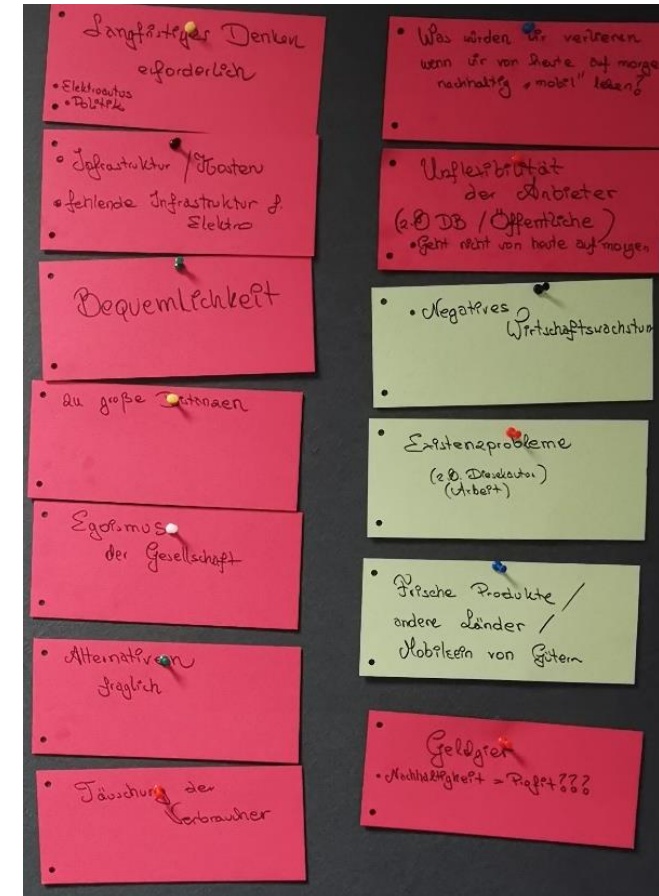 Langfristiges Denken
erforderlich
• Elektroautos
• Politik
• Infrastruktur / Kosten
• fehlende Infrastruktur f.
Elektro
Bequemlichkeit
zu große Distanzen
Egoismus
der Gesellschaft
Alternativen
fraglich
Täuschung der
Verbraucher
• Was würden wir verlieren
wenn wir von heute auf morge
nachhaltig "mobil" leben?
Unflexibilität
der Anbieter
(z.B DB / Öffentliche)
• Geht nicht von heute auf morgen
• Negatives
Wirtschaftswachstum
Existenzprobleme
(z.B. Dieselautos)
(Arbeit)
Frische Produkte /
andere Länder /
Mobilsein von Gütern
Geldgier
• Nachhaltigkeit = Profit???